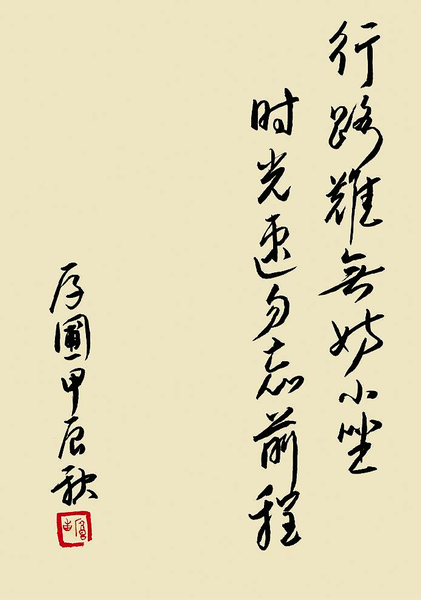 行路難無妨小坐
时光速勿忘前程
厚圃甲辰秋